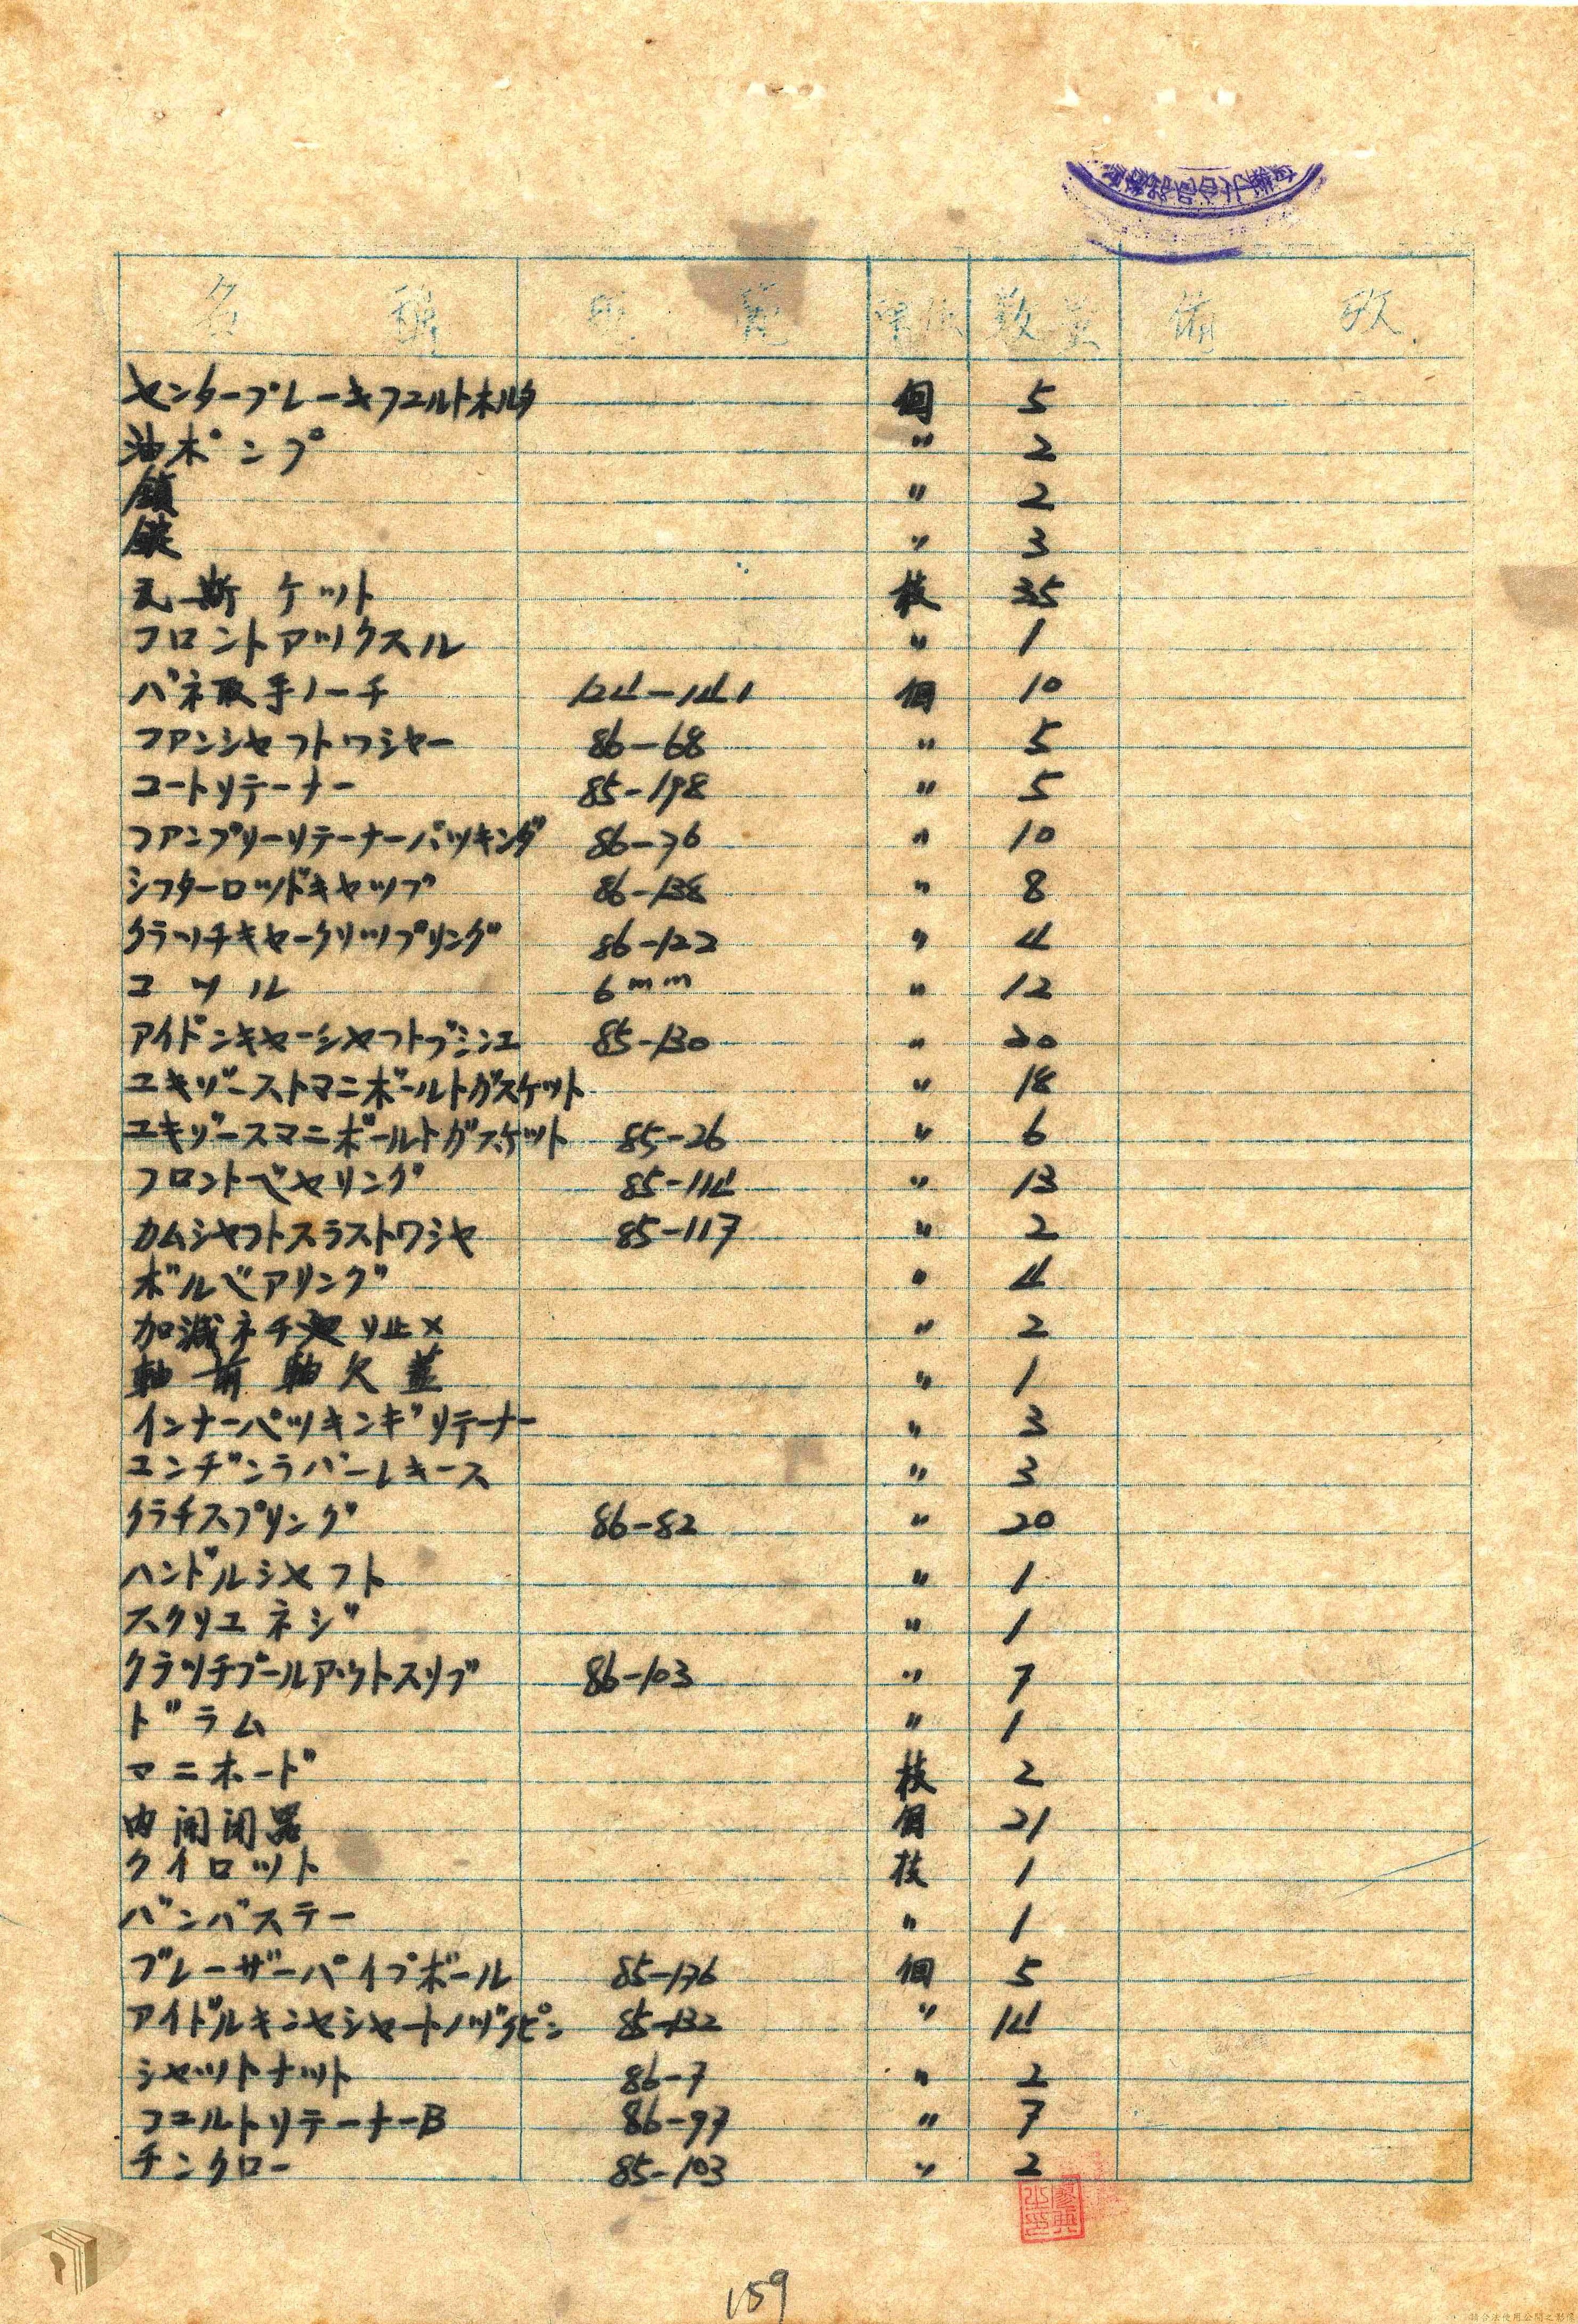 名稱 規範 單位 數量 備攷
センターブレーキフエルトホルタ 個 5
油ポンプ 〃 2
鎖 〃 2
錠 〃 3
瓦斯ケット 枚 35
フロントアツクスル 〃 1
バネ取手ノーチ 124-141 個 10
フアンシヤフトワシヤー 86-68 〃 5
コートリテーナー 85-198 〃 5
フアンプリーリテーナーパツキング 86-76 〃 10
シフターロツドキヤツプ 86-138 〃 8
クラツチキヤークリツプリング 86-122 〃 4
コツル 6mm 〃 12
アイドンキヤーシヤフトブシユ 85-130 〃 20
エキゾーストマニホールトガスケツト 〃 18
エキゾースマニホールトガスケツト 85-26 〃 6
フロントベヤリング 85-114 〃 13
カムシヤフトスラストワシヤ 85-117 〃 2
ボルベアリング 〃 4
加減ネチ リ止メ 〃 2
軸前軸欠蓋 〃 1
インナーパツキンギリテーナー 〃 3
エンヂンラバーレキース 〃 3
クラチスプリング 86-82 〃 20
ハンドルシヤフト 〃 1
スクリエネジ 〃 1
クラツチプールアウトスリブ 86-103 〃 7
ドラム 〃 1
マニホード 枚 2
内開閉器 個 21
クイロツト 枝 1
バンバステー 〃 1
ブレーザーパイプボール 85-136 個 5
アイドルキンヤシヤートノヅクピン 85-132 〃 14
シヤツトナツト 86-7 〃 2
フエルトリテーナーB 86-97 〃 7
チンクロー 85-103 〃 2
159